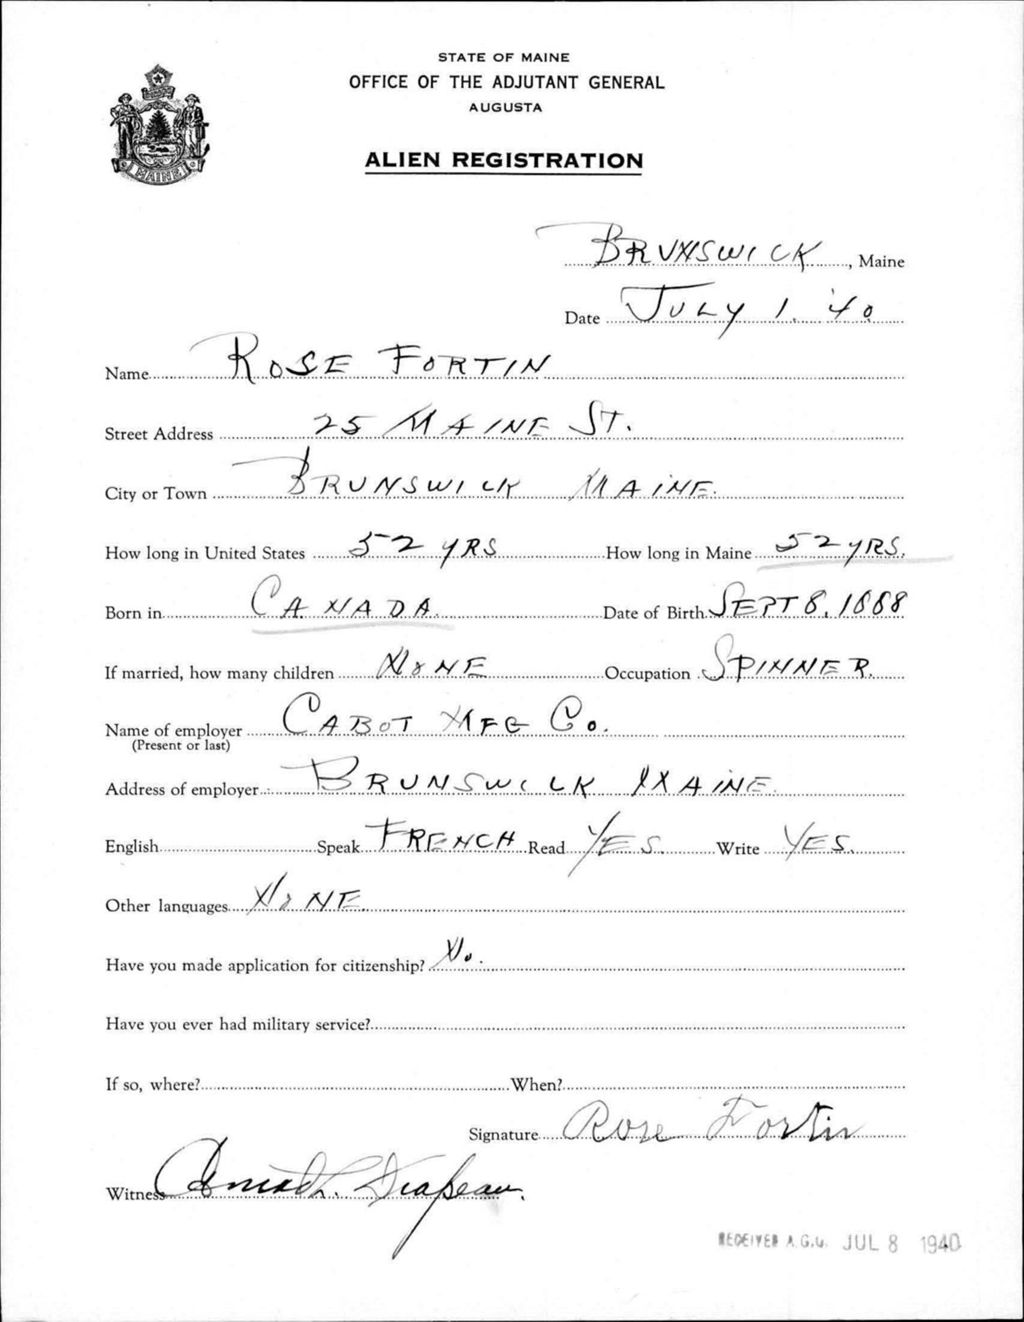 STATE OF MAINE
OFFICE OF THE ADJUTANT GENERAL
AUGUSTA
ALIEN REGISTRATION
MAINE
BRUNSWICK, Maine
Date JULY 1. '40
Name ROSE FORTIN
Street Address 25 MAINE ST.
City or Town BRUNSWICK MAINE.
How long in United States 52 YRS How long in Maine 52 YRS.
Born in CANADA. Date of Birth SEPT 8. 1888
If married, how many children NONE Occupation SPINNER.
Name of employer CABOT MFG Co.
(Present or last)
Address of employer BRUNSWICK MAINE.
English Speak FRENCH Read YES. Write YES.
Other languages NONE.
Have you made application for citizenship? No.
Have you ever had military service?
If so, where? When?
Signature Rose Fortin
Witness L. Drapeau.
RECEIVED A.G.O. JUL 8 1940